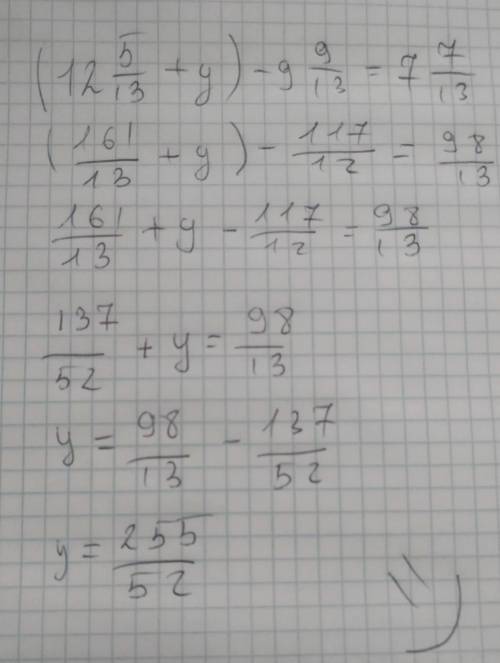 (12 5/13 + y) - 9 9/13 = 7 7/13
(161/13 + y) - 117/12 = 98/13
161/13 + y - 117/12 = 98/13
137/52 + y = 98/13
y = 98/13 - 137/52
y = 255/52